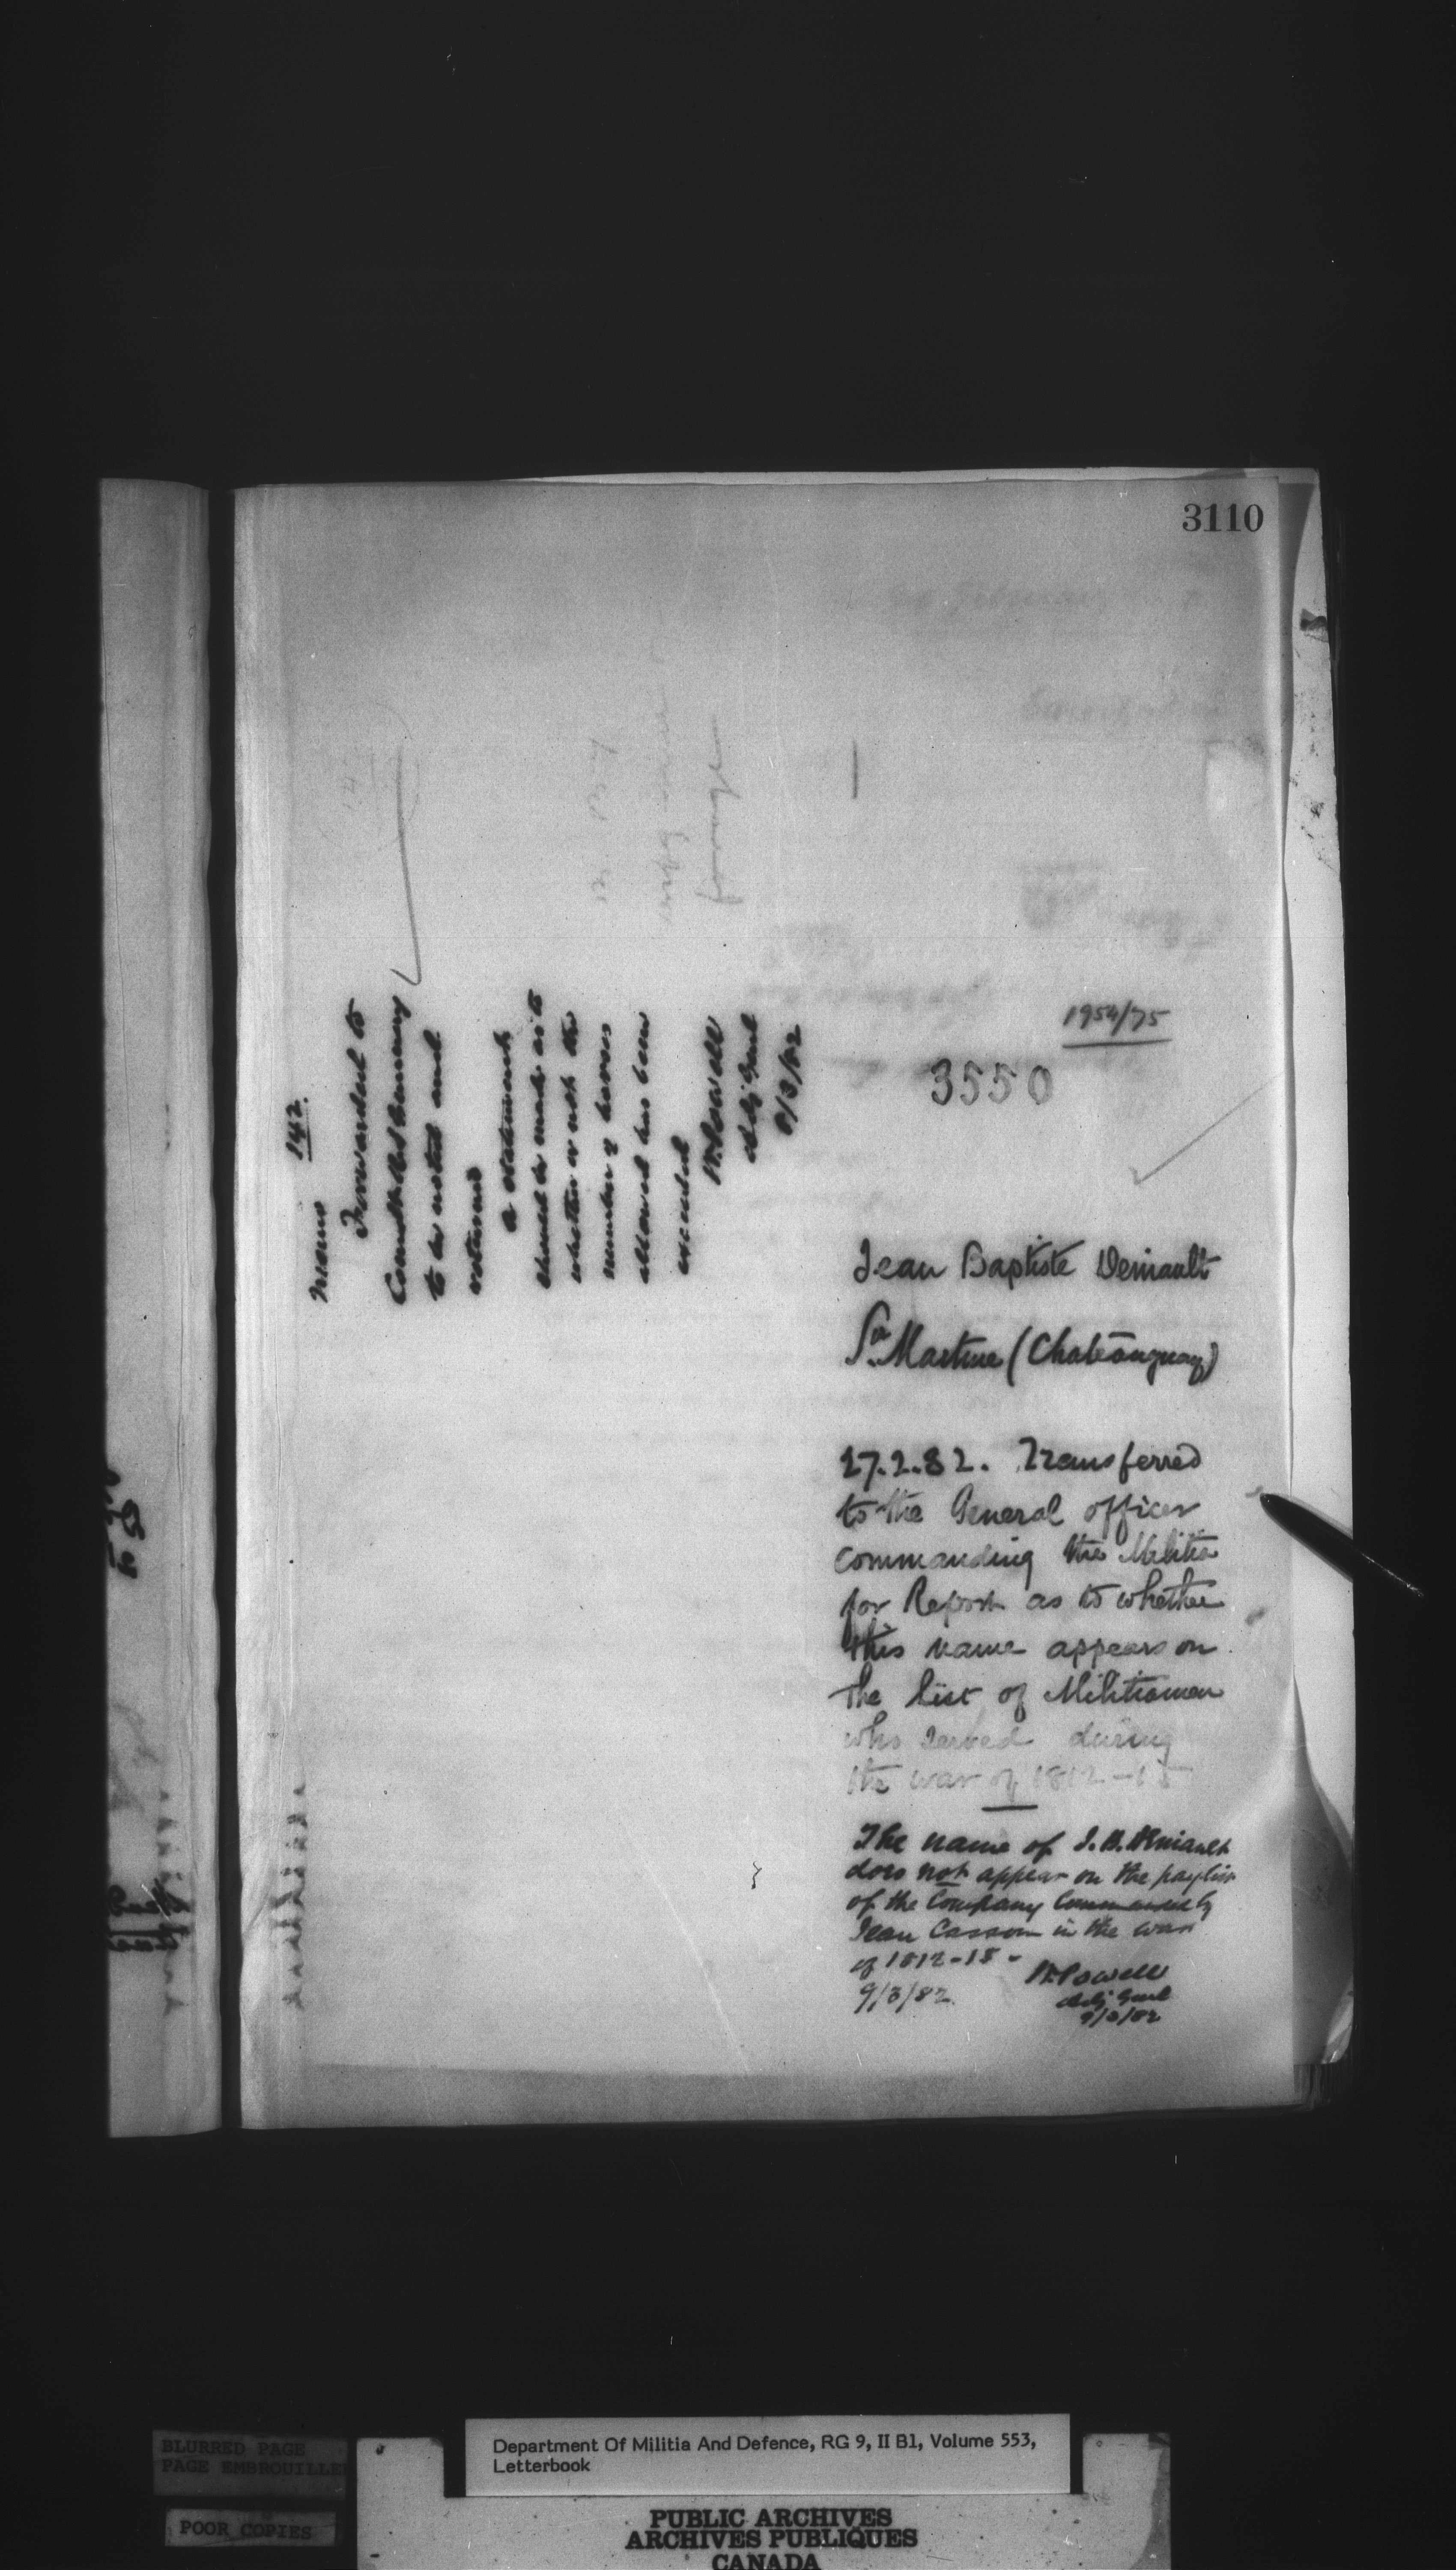 3110
Memo 142.
Forwarded to
to be noted and
returned
a statement
should be made as to
whether or not the
number of horses
allowed has been
exceeded
W. Powell
Adj. Genl
8/3/82
1954/75
3550
Jean Baptiste
Ste. Martine (Chateauguay)
27.2.82. Transferred
to the General officer
commanding the Militia
for Report as to whether
this name appears on
the list of Militiamen
who served during
the war of 1812-15
The name of J.B.
does not appear on the paylist
of the Company Commanded by
Jean in the war
of 1812-15 -
9/3/82.
W. Powell
Adj. Genl
9/3/82
BLURRED PAGE
PAGE EMBROUILLEE
POOR COPIES
Department Of Militia And Defence, RG 9, II B1, Volume 553,
Letterbook
PUBLIC ARCHIVES
ARCHIVES PUBLIQUES
CANADA